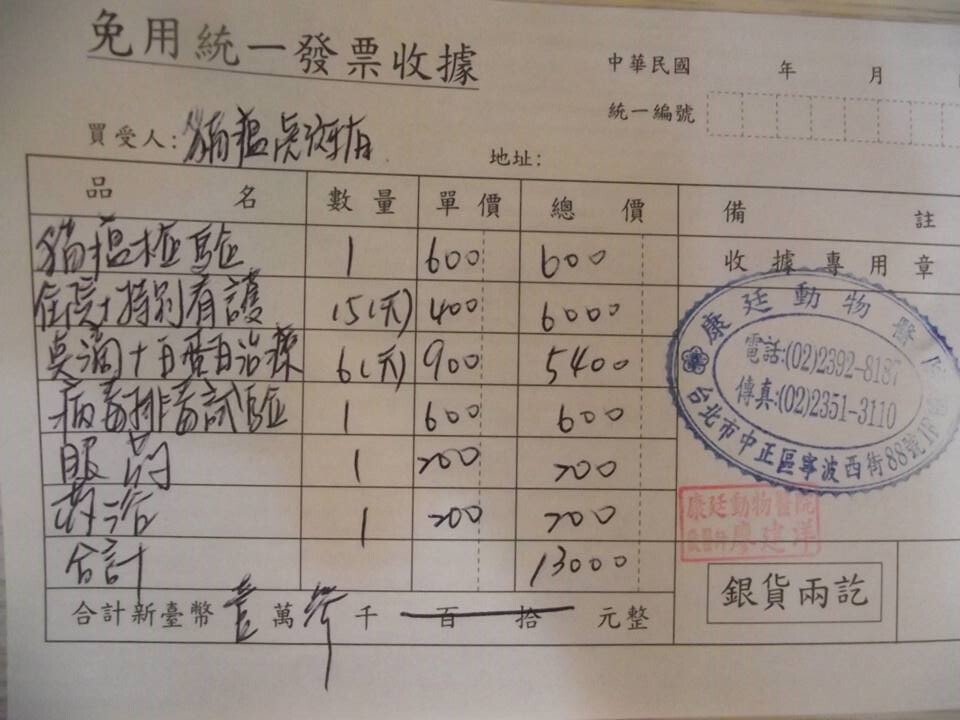 免用統一發票收據
中華民國 年 月
統一編號
買受人:貓瘟虎斑
地址:
品名 數量 單價 總價 備註
貓瘟檢驗 1 600 600 收據專用章
住院+特別看護 15(天) 400 6000
點滴+白蛋白治療 6(天) 900 5400
病毒排毒試驗 1 600 600
眼药 1 200 200
1 200 200
合計 13000
合計新臺幣 壹 萬 參 千 百 拾 元整
康廷動物醫院
電話:(02)2392-8187
傳真:(02)2351-3110
台北市中正區寧波西街88號1F
康廷動物醫院
廖建洋
銀貨兩訖